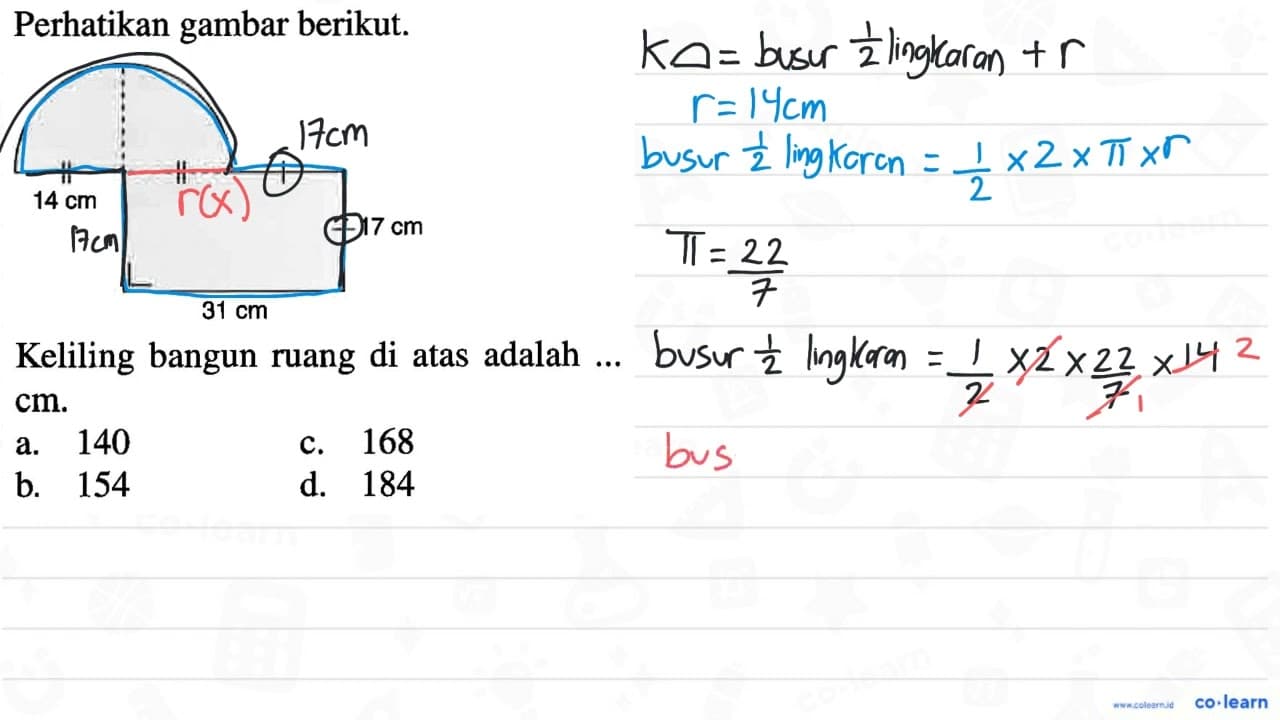 Perhatikan gambar berikut.
17cm
14 cm
r(x)
17cm
17 cm
31 cm
Keliling bangun ruang di atas adalah ...
cm.
a. 140
c. 168
b. 154
d. 184
K⌓ = busur 1/2 lingkaran + r
r = 14cm
busur 1/2 lingkaran = 1/2 × 2 × π × r
π = 22/7
busur 1/2 lingkaran = 1/2 × 2 × 22/7 × 14 2
1
bus
co·learn
co·learn
co·learn
www.colearn.id co·learn